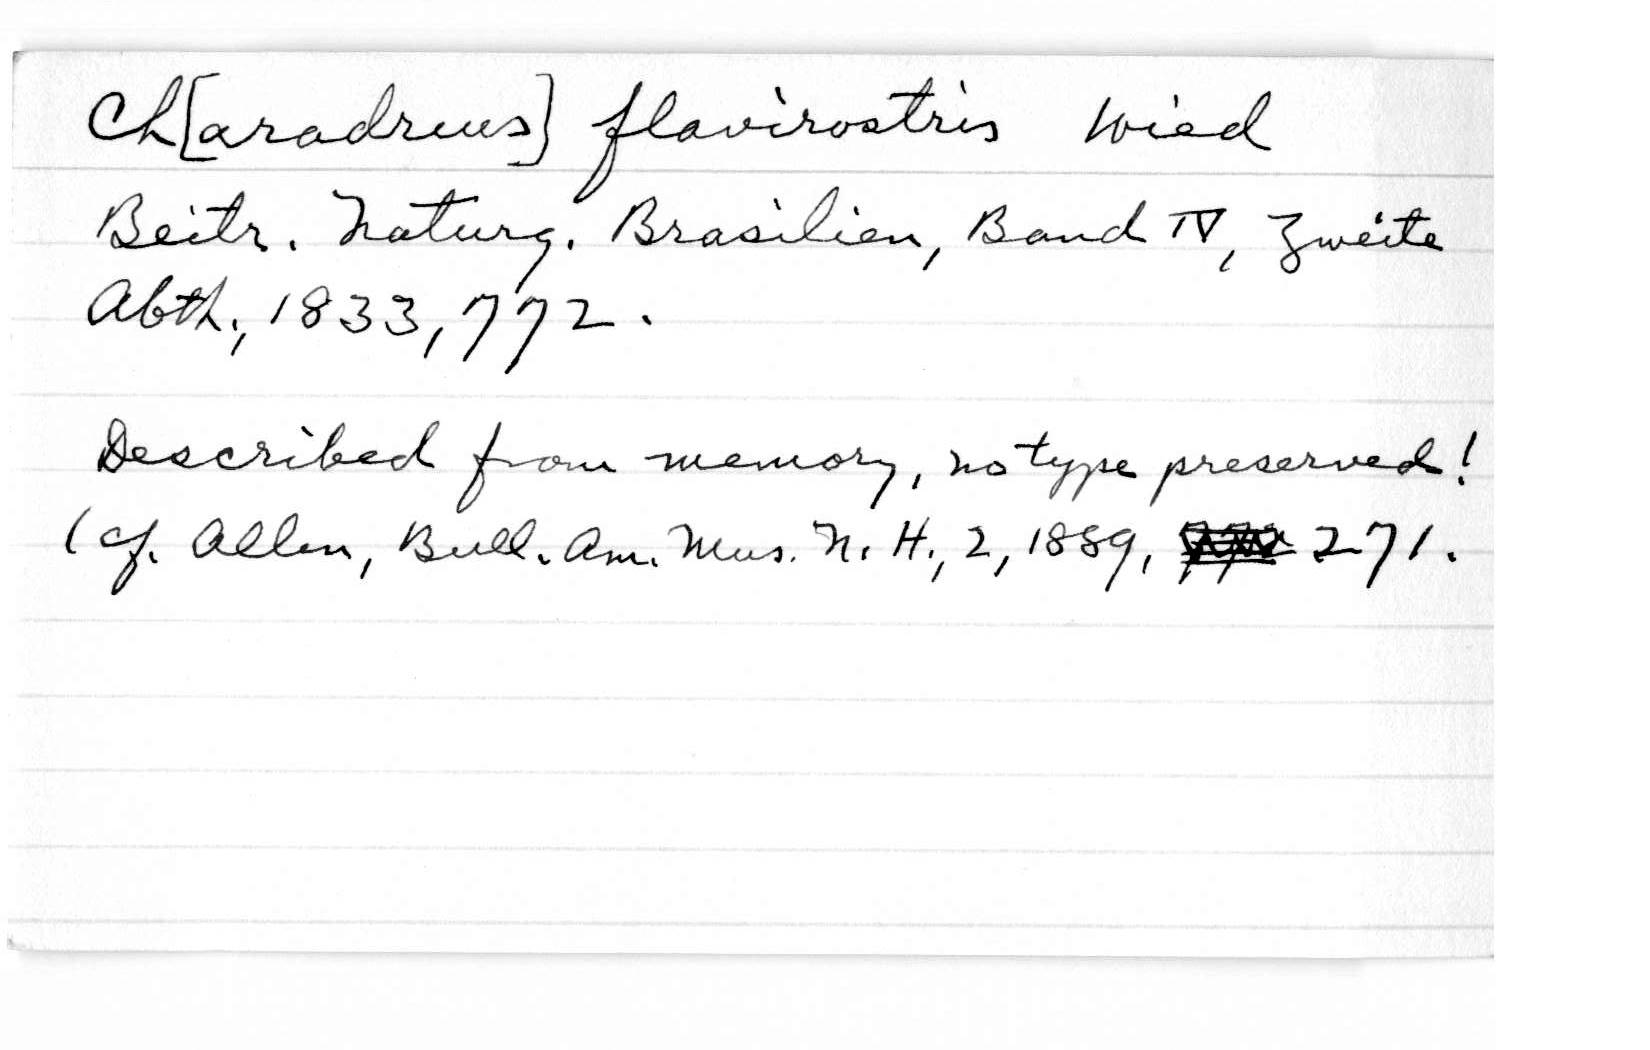 Ch[aradrius] flavirostris Wied
Beitr. Naturg. Brasilien, Band IV, Zweite
Abth., 1833, 772.
Described from memory, no type preserved!
(cf. Allen, Bull. Am. Mus. N. H., 2, 1889, 271.